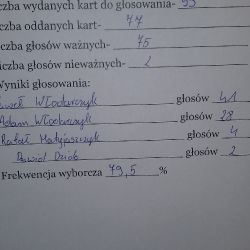 czba wydanych kart do głosowania- 93
iczba oddanych kart- 77
iczba głosów ważnych- 75
liczba głosów nieważnych- 2
Wyniki głosowania:
Paweł Włodarczyk głosów 41
Adam Włodarczyk głosów 28
Rafał Matyjaszczyk głosów 4
Dawid Dziob głosów 2
Frekwencja wyborcza 79,5 %